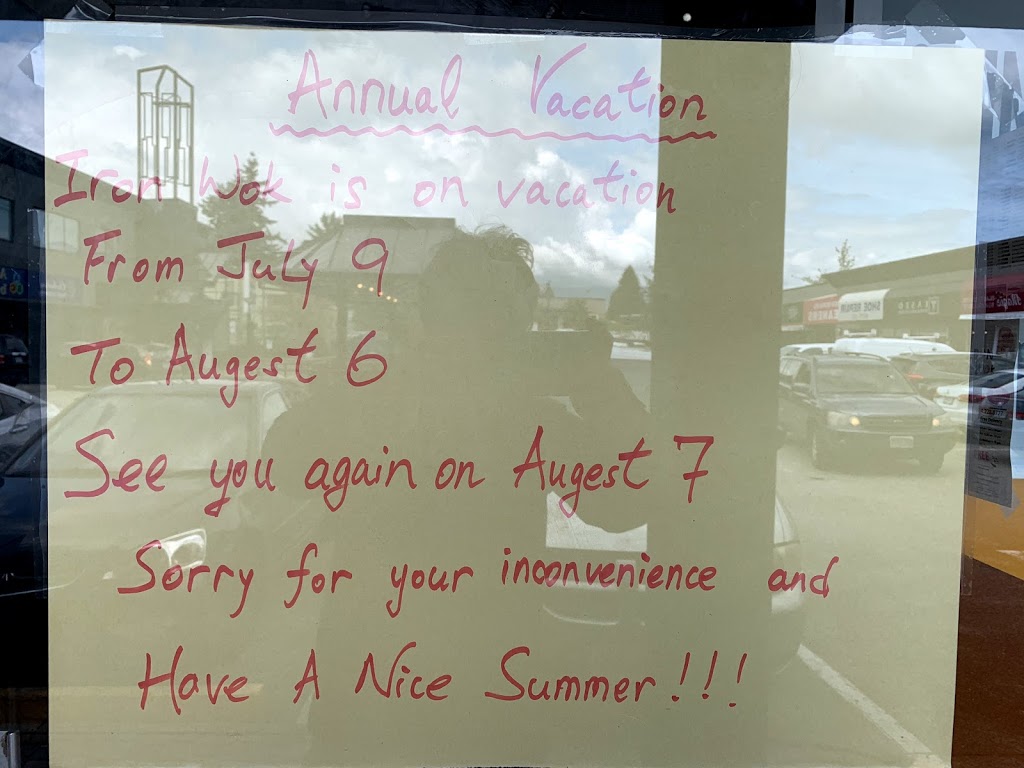 Annual Vacation
Iron Wok is on vacation
From July 9
To Augest 6
See you again on Augest 7
Sorry for your inconvenience and
Have A Nice Summer!!!
SHOE REPAIR